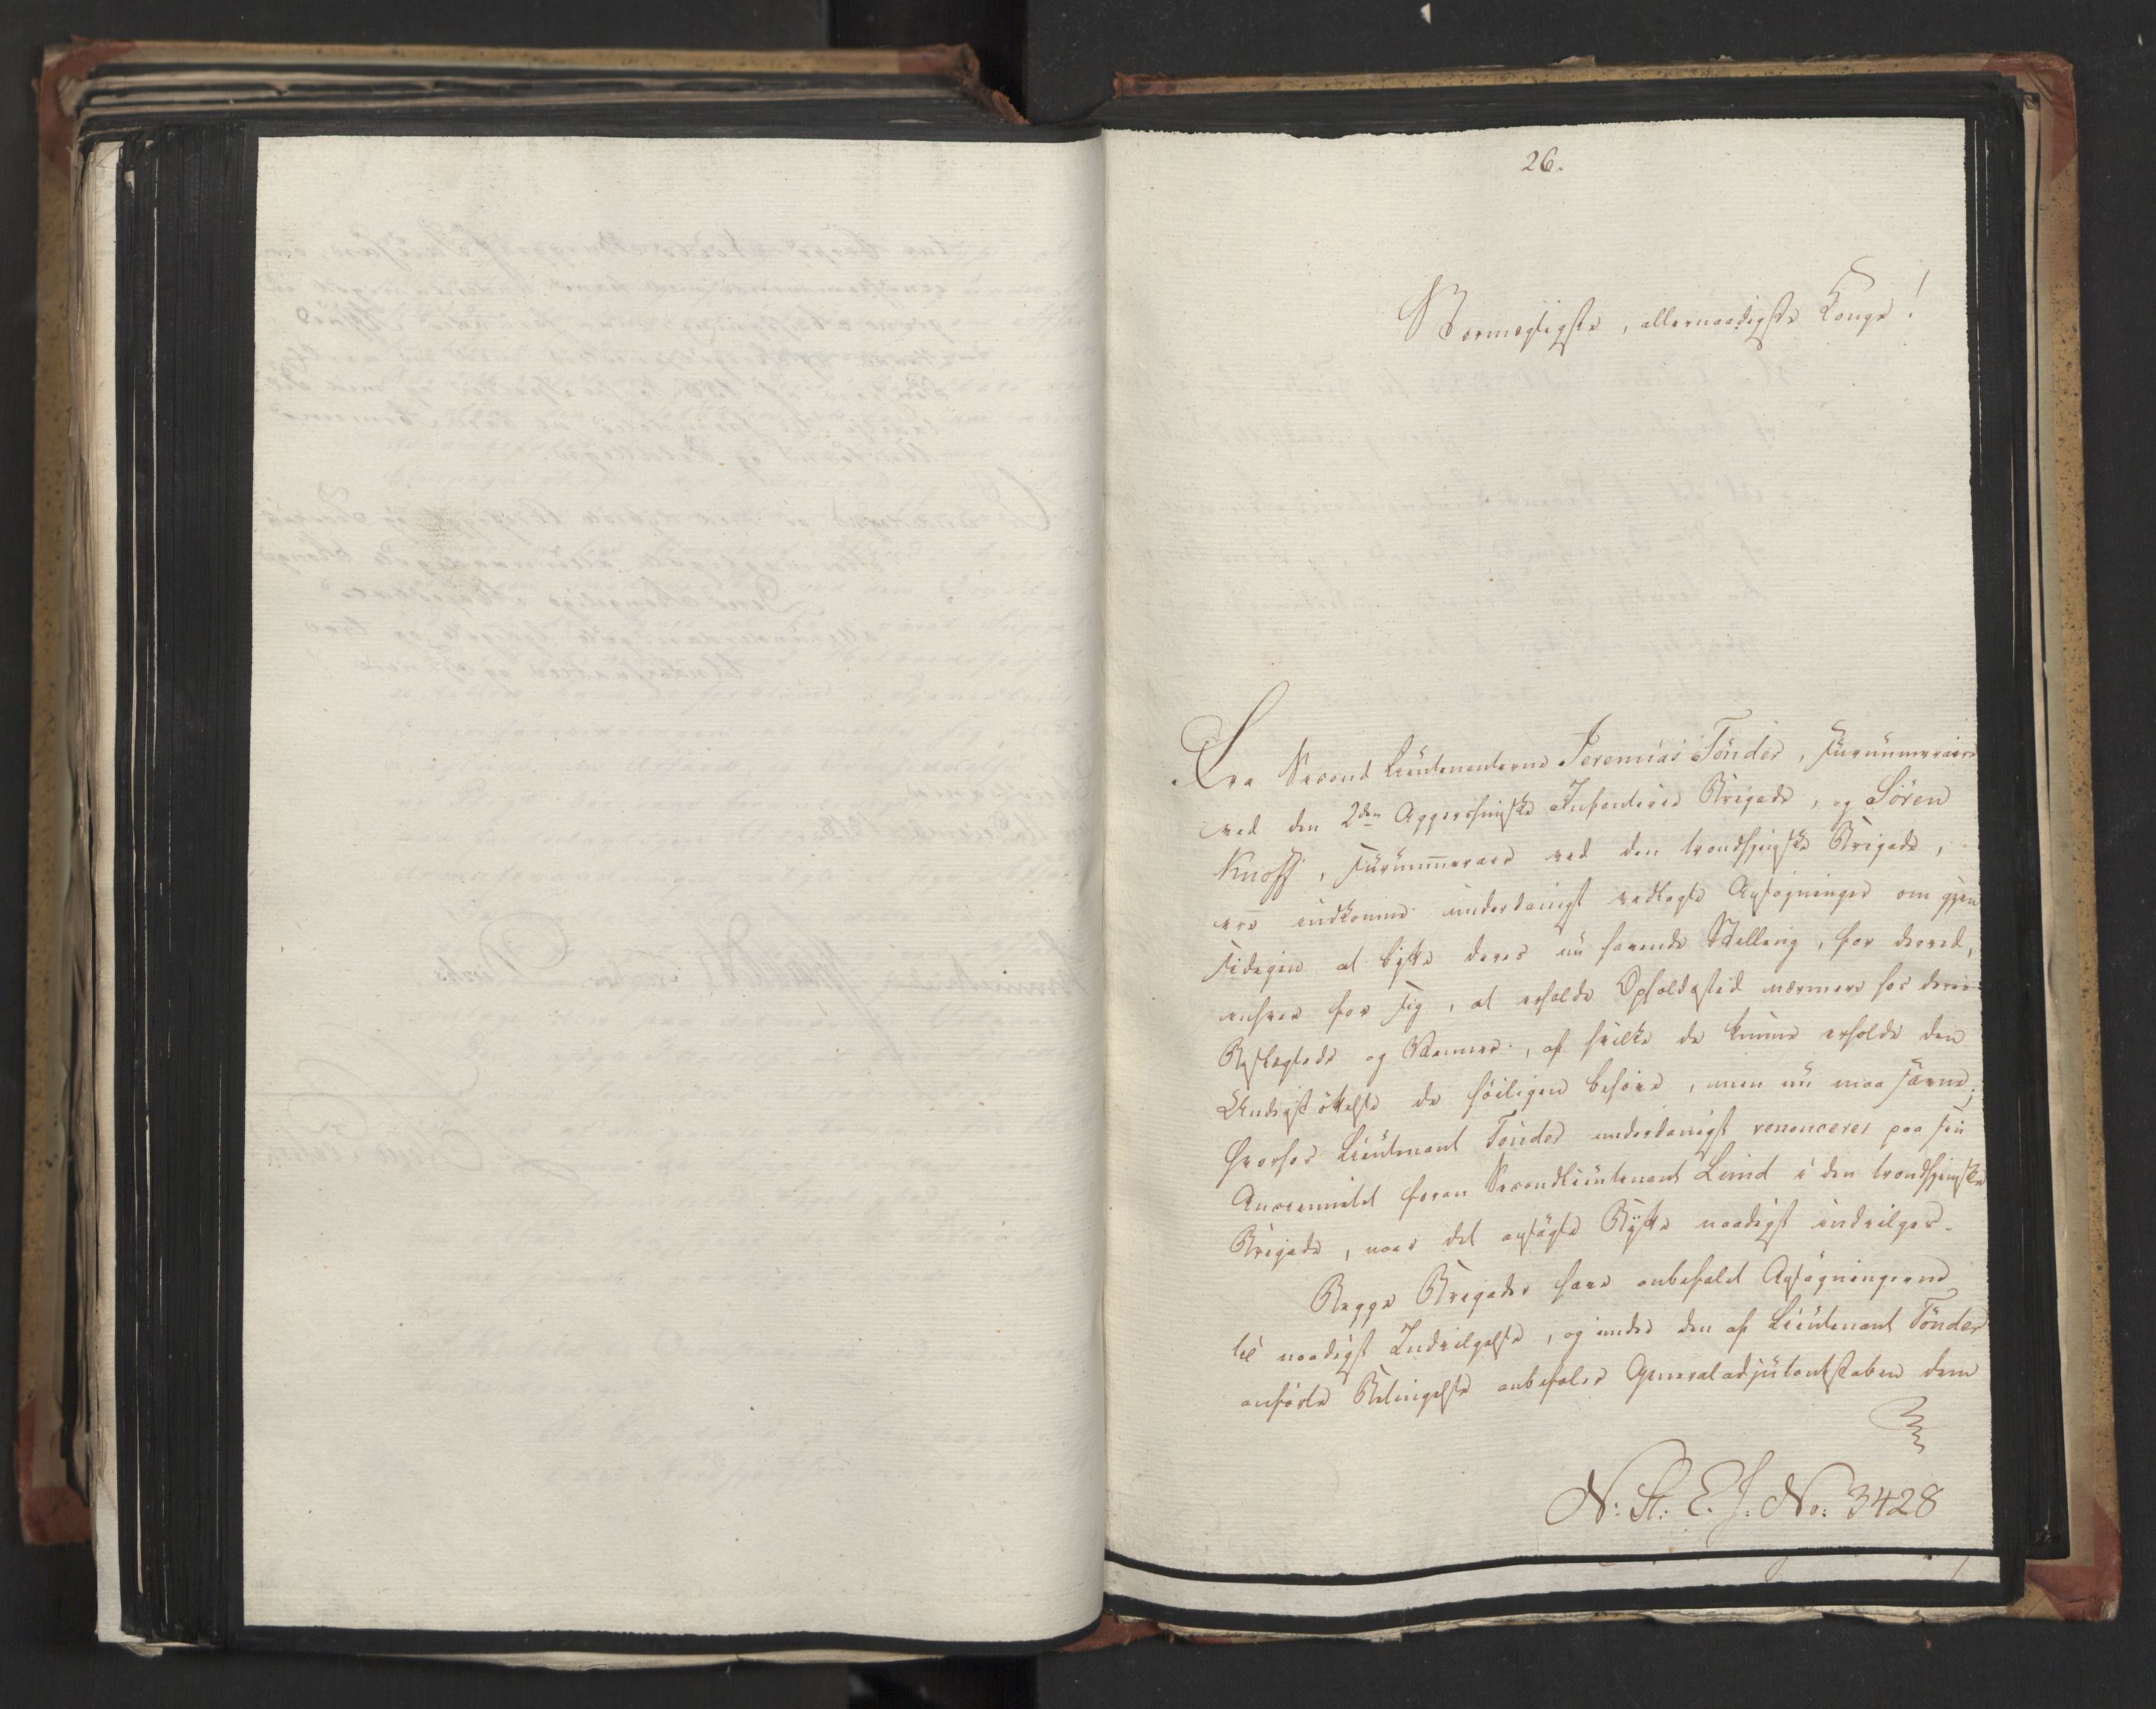 26.
Stormægtigste, allernaadigste Konge!
Fra Second Lieutenanterne Jeremias Tönder, Surnumerair
ved den 2den Aggershuusske Infanterie Brigade, og Sören
Knoff, Surnumerair ved den trondhjemske Brigade,
ere indkomne underdanigst vedlagte Ansøgninger om gjen
sidigen at bytte deres nu havende Stelling, for derved,
enhver for sig, at erholde Opholdssted nærmere hos deres
Beslægtede og Venner, af hvilke de kunne erholde den
Understöttelse de höiligen behöve, men nu maa savne;
hvorhos Lieutenant Tönder underdanigst renoncerer paa sin
Ancienniteet foran Secondlieutenant Lund i den trondhjemske
Brigade, naar det ansögte Bytte naadigst indvilges.
Begge Brigader have anbefalet Ansögningerne
til naadigst Indvilgelse, og under den af Lieutenant Tönder
anförte Betingelse anbefaler Generaladjutantstaben dem
N: St: E. J: No: 3428